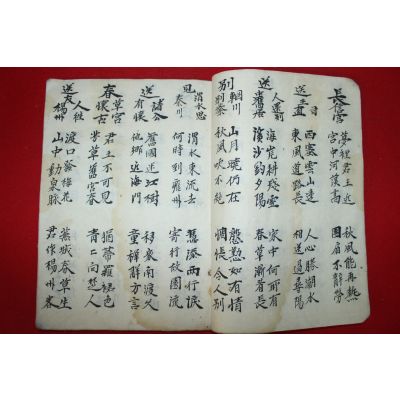 長信宮
夢裡君王近
宮中河漢高
秋風能再熱
團扇不辭勞
送
西塞雲山遠
東風道路長
人心勝潮水
相送過潯陽
送人還
海岸耕殘雪
溪沙釣夕陽
家中何所有
春草漸看長
別輞川別
山月曉仍在
秋風吹不絶
慇懃如有情
惆悵令人別
渭水思秦川
渭水東流去
何時到雍州
憑添兩行淚
寄行故園流
送有懷
舊國近江樹
他鄉近海門
移家南渡久
童稚解方言
春草宮懷古
君王不可見
芳草舊宮春
猶帶羅裙色
青々向楚人
送人往楊州
渡口發梅花
山中動泉脉
蕪城春草生
君作楊州客